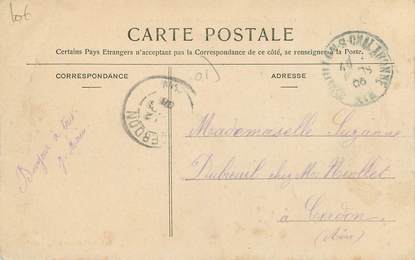 106
CARTE POSTALE
Certains Pays Etrangers n'acceptant pas la Correspondance de ce côté, se renseigner à la Poste.
CORRESPONDANCE
ADRESSE
CHALARONNE
AIN
06
(01)
CERDON
Bonjour à tous
Mademoiselle Suzanne
Dubreuil chez Mr
à Cerdon
(Ain)